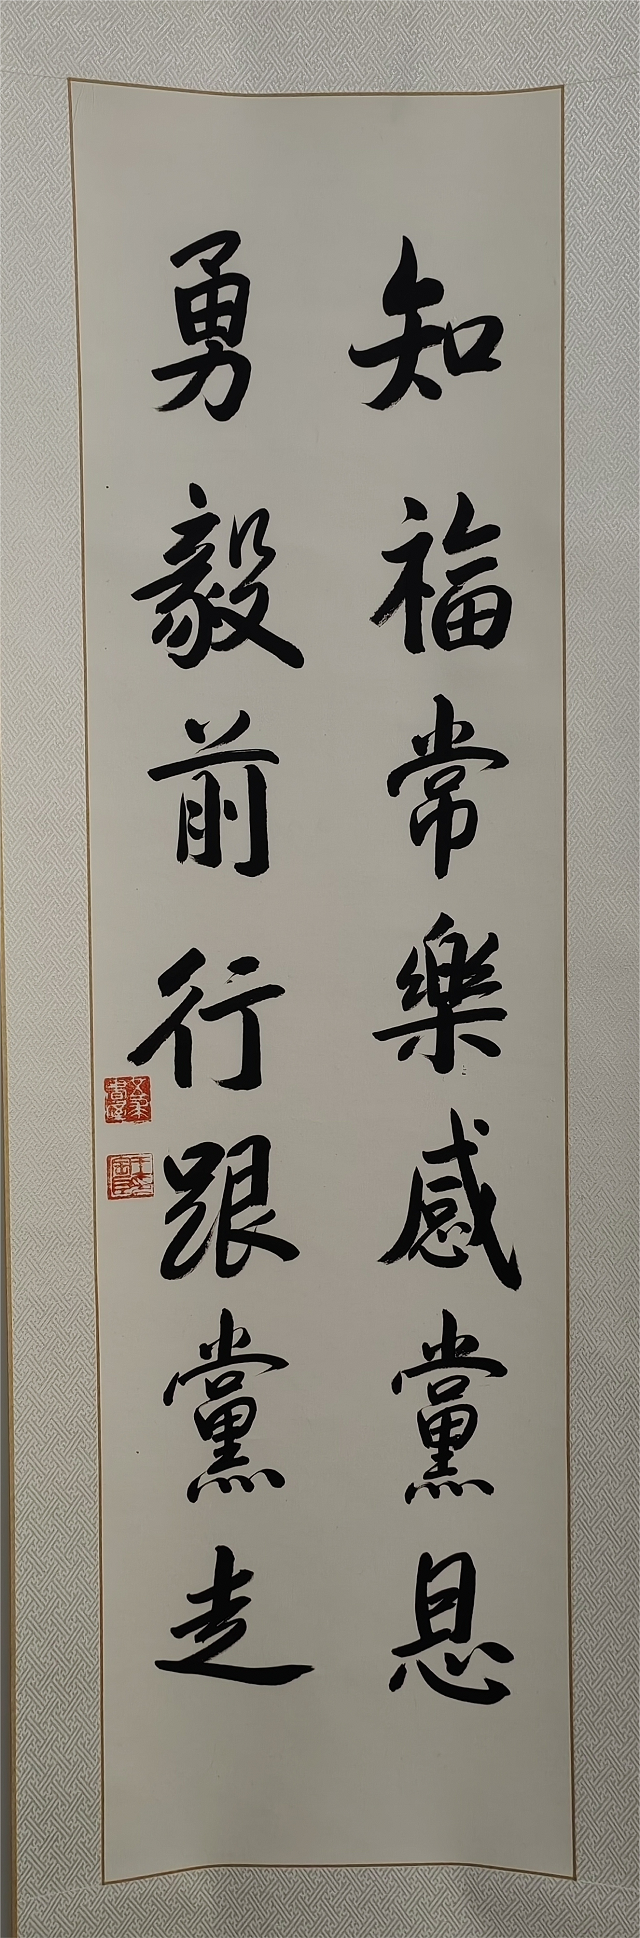 知福常樂感黨恩
勇毅前行跟黨走